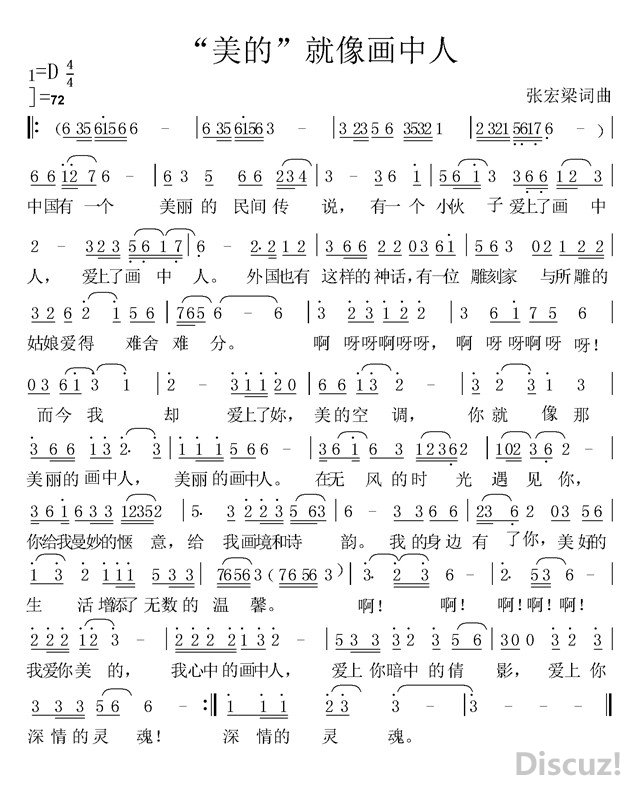 “美的”就像画中人
1=D 4/4
=72 张宏梁词曲
(6 3561566 6 - | 6 3561563 3 - | 3 2356 35321 | 2 3215617 6 - )
66127 6 - | 63 5 66 234 | 3 - 36 1 | 56 33 366 12 3
中国有一个 美丽的民间传说，有一个小伙子爱上了画中
2 - 323 5617 | 6 - 2.212 | 3 66 22 0361 | 53 5 021 22
人，爱上了画中人。外国也有这样的神话，有一位雕刻家与所雕的
326 2 1 56 | 765 6 - 6 - | 3 23122 | 3 61756
姑娘爱得难舍难分。啊呀呀啊呀呀，啊呀呀啊呀呀！
03 61 3 1 | 2 - 311 20 | 66 13 2 - | 3 2 31 3
而今我却爱上了妳，美的空调，你就像那
366 13 2. 3 | 1 11 566 - | 361 63 6. | 12362 | 102 3 6 -
美丽的画中人，美丽的画中人。在无风的时光遇见你，
361 633 12352 | 5. 3 223 563 | 6 - 3 366 | 23 62 03 53
你给我曼妙的惬意，给我画境和诗韵。我的身边有了你，美好的
1 3 2 111 533 | 76563 (76563) | 3. 2 3 6 - | 2. 53 6 -
生活增添了无数的温馨。啊！啊！啊！啊！啊！
222 12 3 - | 222 21 13 - | 53 33 32 3 56 | 300 3 32
我爱你美的，我心中的画中人，爱上你暗中的倩影，爱上你
3 33 56 6 - | 1 11 1 | 23 3 - | 3 - - -
深情的灵魂！深情的灵魂。
Discuz!